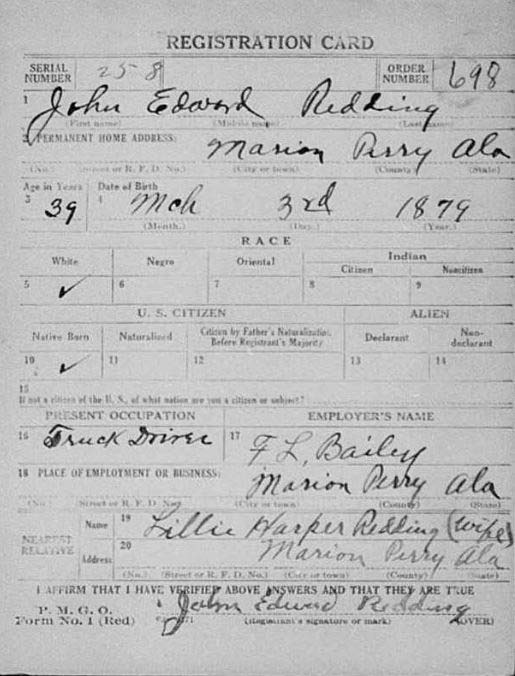 REGISTRATION CARD
SERIAL NUMBER 258 ORDER NUMBER 698
1 John Edward Redding
(First name) (Middle name) (Last name)
2 PERMANENT HOME ADDRESS: Marion Perry Ala
(No.) (Street or R. F. D. No.) (City or town) (County) (State)
Age in Years Date of Birth
3 39 4 Mch 3rd 1879
(Month.) (Day.) (Year.)
RACE
White Negro Oriental Indian
Citizen Noncitizen
5 ✓ 6 7 8 9
U. S. CITIZEN ALIEN
Native Born Naturalized Citizen by Father's Naturalization Before Registrant's Majority Declarant Non-declarant
10 ✓ 11 12 13 14
15
If not a citizen of the U. S., of what nation are you a citizen or subject?
PRESENT OCCUPATION EMPLOYER'S NAME
16 Truck Driver 17 F L, Bailey
18 PLACE OF EMPLOYMENT OR BUSINESS: Marion Perry Ala
(No.) (Street or R. F. D. No.) (City or town) (County) (State)
NEAREST RELATIVE Name 19 Lillie Harper Redding (wife)
Address 20 Marion Perry Ala
(No.) (Street or R. F. D. No.) (City or town) (County) (State)
I AFFIRM THAT I HAVE VERIFIED ABOVE ANSWERS AND THAT THEY ARE TRUE
P. M. G. O. John Edward Redding
Form No. 1 (Red) (Registrant's signature or mark) (OVER)